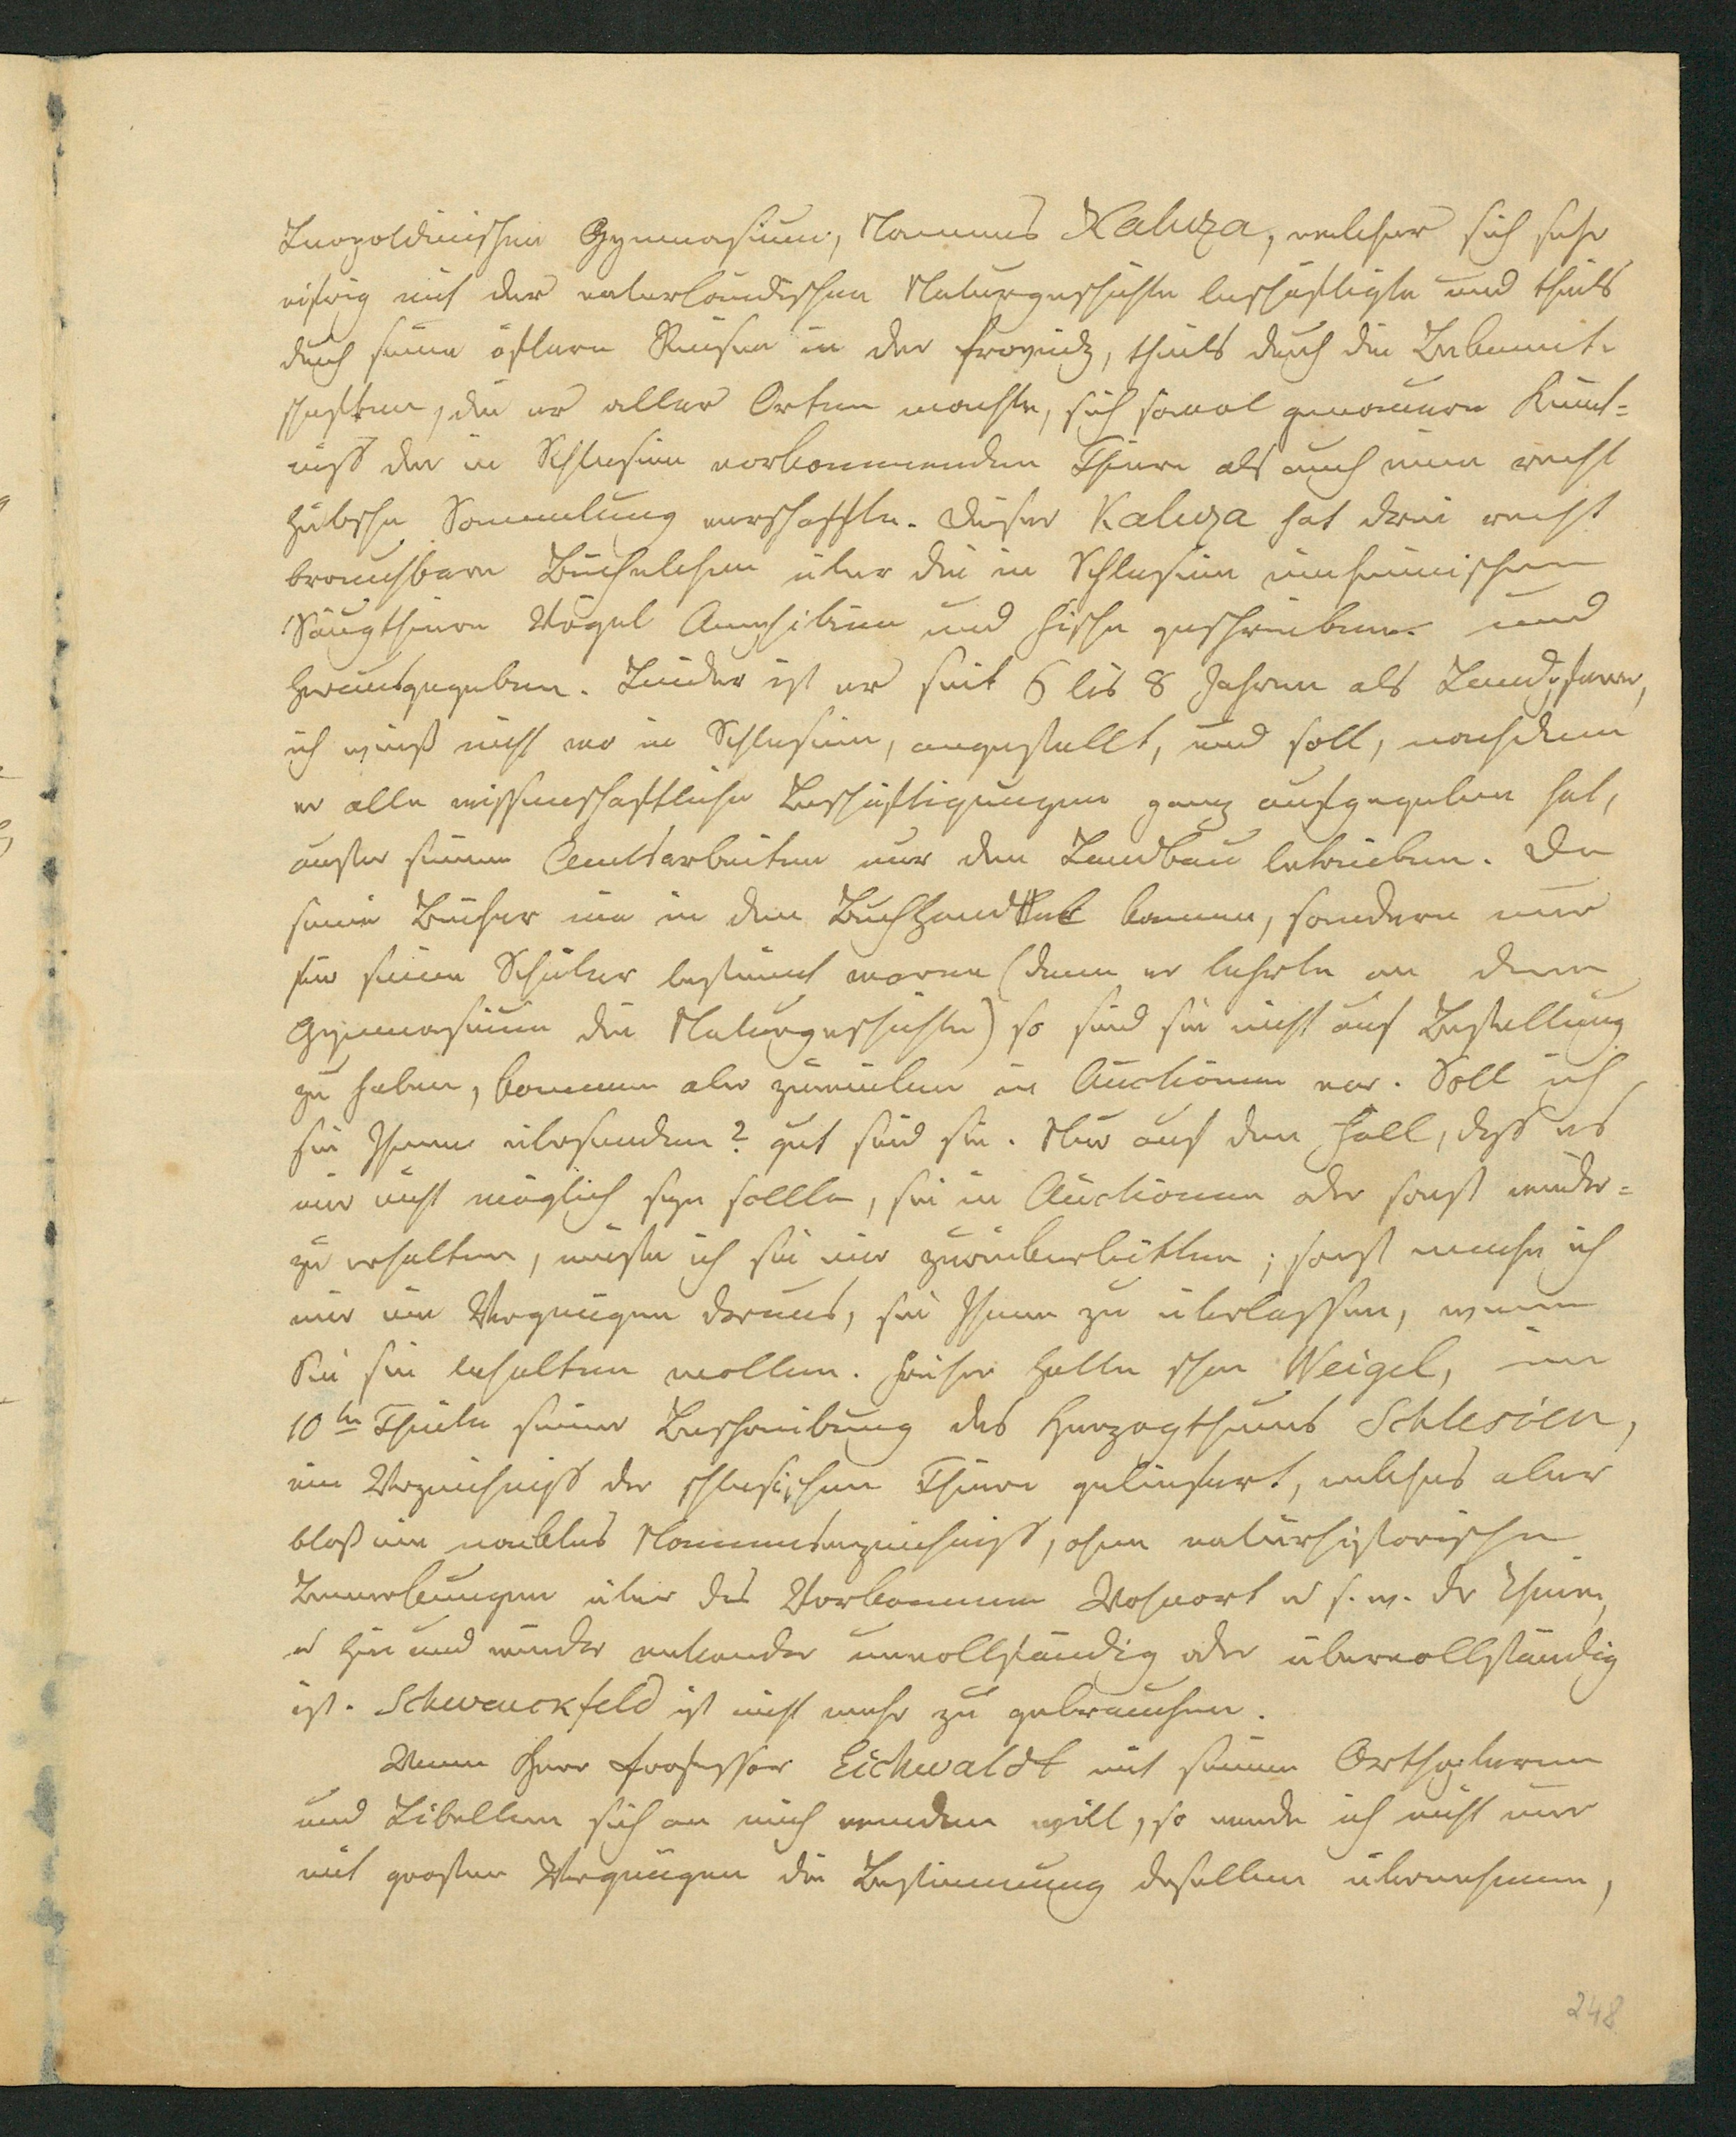 Leopoldinischen Gymnasium, Namens Kaluza, welcher sich sehr
eifrig mit der vaterländischen Naturgeschichte beschäftigte und theils
durch seine öftern Reisen in der Provinz, theils durch die Bekannt-
schaften, die er aller Orten machte, sich sowol genauere Kennt=
niß der in Schlesien vorkommenden Thiere als auch eine recht
hübsche Sammlung verschaffte. Dieser Kaluza hat drei recht
brauchbare Büchelchen über die in Schlesien einheimischen
Säugthiere Vögel Amphibien und Fische geschrieben und
herausgegeben. Leider ist er seit 6 bis 8 Jahren als Landpfarrer,
ich weiß nicht wo in Schlesien, angestellt, und soll, nachdem
er alle wissenschaftliche Beschäftigungen ganz aufgegeben hat,
außer seinen Amtsarbeiten nur den Landbau betreiben. Da
seine Bücher nie in den Buchhandel kamen, sondern nur
für seine Schüler bestimt waren (denn er lehrte an dem
Gymnasium die Naturgeschichte) so sind sie nicht auf Bestellung
zu haben, kommen aber zuweilen in Auctionen vor. Soll ich
sie Ihnen übersenden? gut sind sie. Nur auf den Fall, daß es
mir nicht möglich seyn sollte, sie in Auctionen oder sonst wieder=
zu erhalten, müßte ich sie mir zurückerbitten; sonst mache ich
mir ein Vergnügen daraus, sie Ihnen zu überlassen, wenn
Sie sie behalten wollen. Früher hatte schon Weigel, im
10ten Theile seiner Beschreibung des Herzogthums Schlesien,
ein Verzeichniß der schlesischen Thiere geliefert, welches aber
bloß ein nacktes Namensverzeichniß, ohne naturhistorische
Bemerkungen über das Vorkommen Wohnort u s. w. der Thiere,
u hin und wieder entweder unvollständig oder übervollständig
ist. Schwenckfeld ist nicht mehr zu gebrauchen.
Wenn Herr Professor Eichwaldt mit seinen Orthopteren
und Libellen sich an mich wenden will, so werde ich nicht nur
mit großem Vergnügen die Bestimmung deselben übernehmen,
248